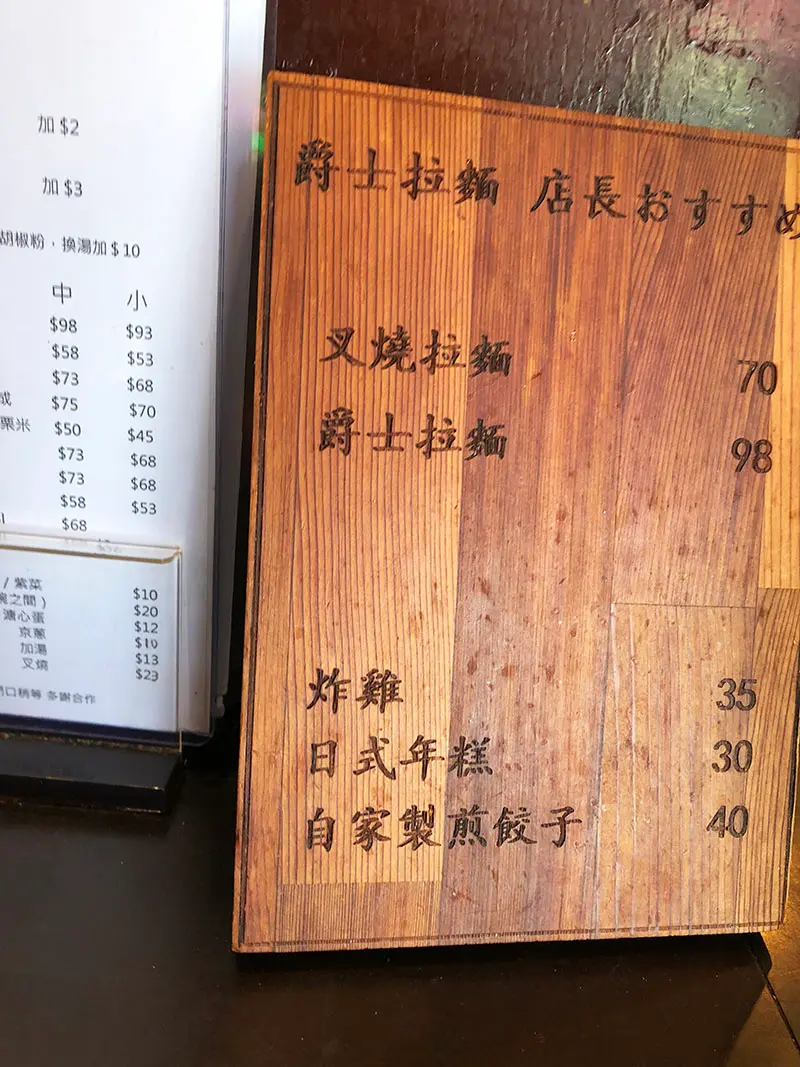 加 $2
加 $3
胡椒粉，換湯加 $10
中 小
$98 $93
$58 $53
$73 $68
$75 $70
栗米 $50 $45
$73 $68
$73 $68
$58 $53
$68
/ 紫菜 $10
之間 ) $20
溏心蛋 $12
京蔥 $10
加湯 $13
叉燒 $23
多謝合作
爵士拉麵 店長おすすめ
叉燒拉麵 70
爵士拉麵 98
炸雞 35
日式年糕 30
自家製煎餃子 40